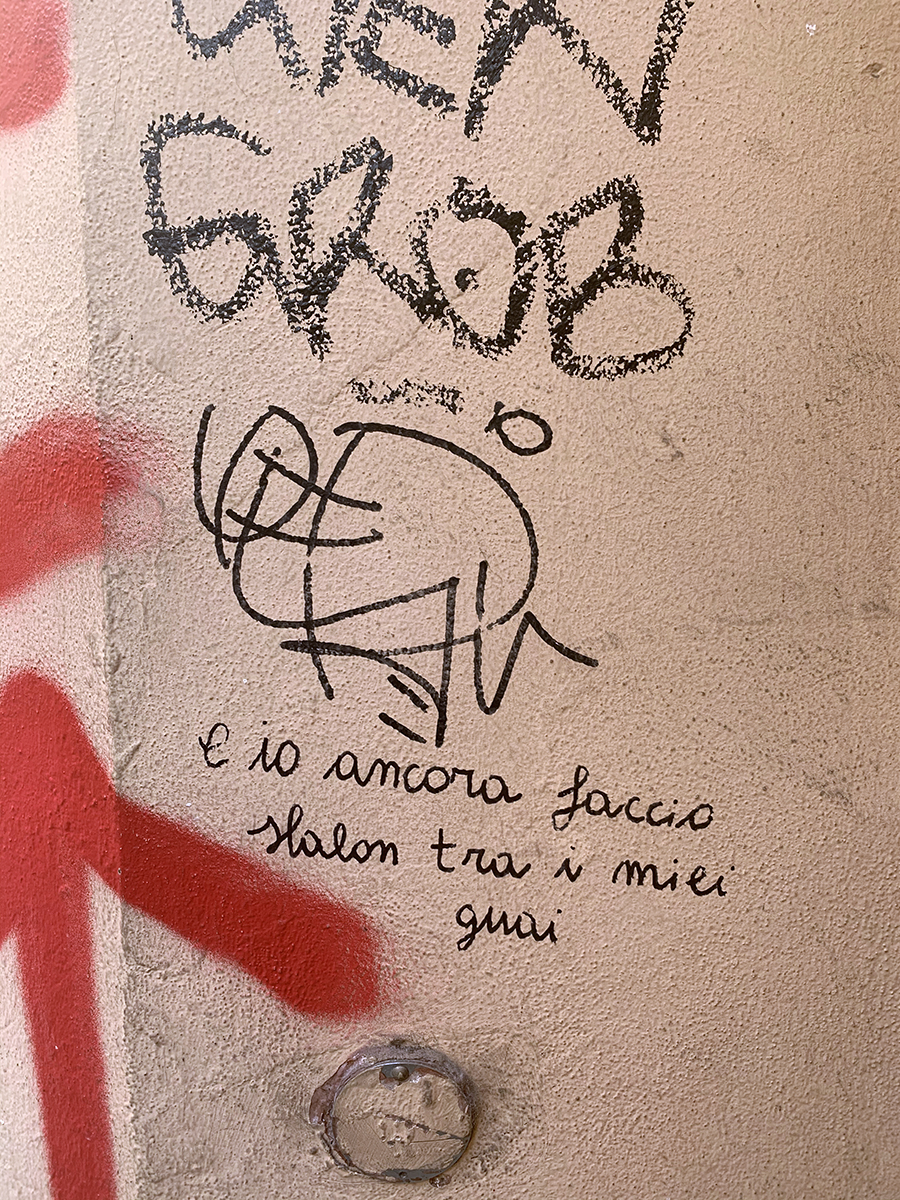 GROB
e io ancora faccio
slalon tra i miei
guai